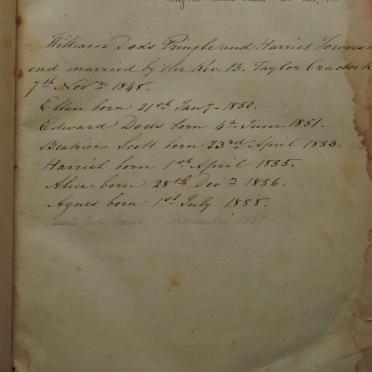 William Dods Pringle and Harriet Towns
end married by the Rev. B. Taylor Cradock
7th Novr 1848.
Ellen born 21st Jany 1850.
Edward Dods born 4th June 1851.
Beatrice Scott born 23rd April 1853.
Harriet born 1st April 1855.
Alice born 28th Decr 1856.
Agnes born 1st July 1858.
born 1